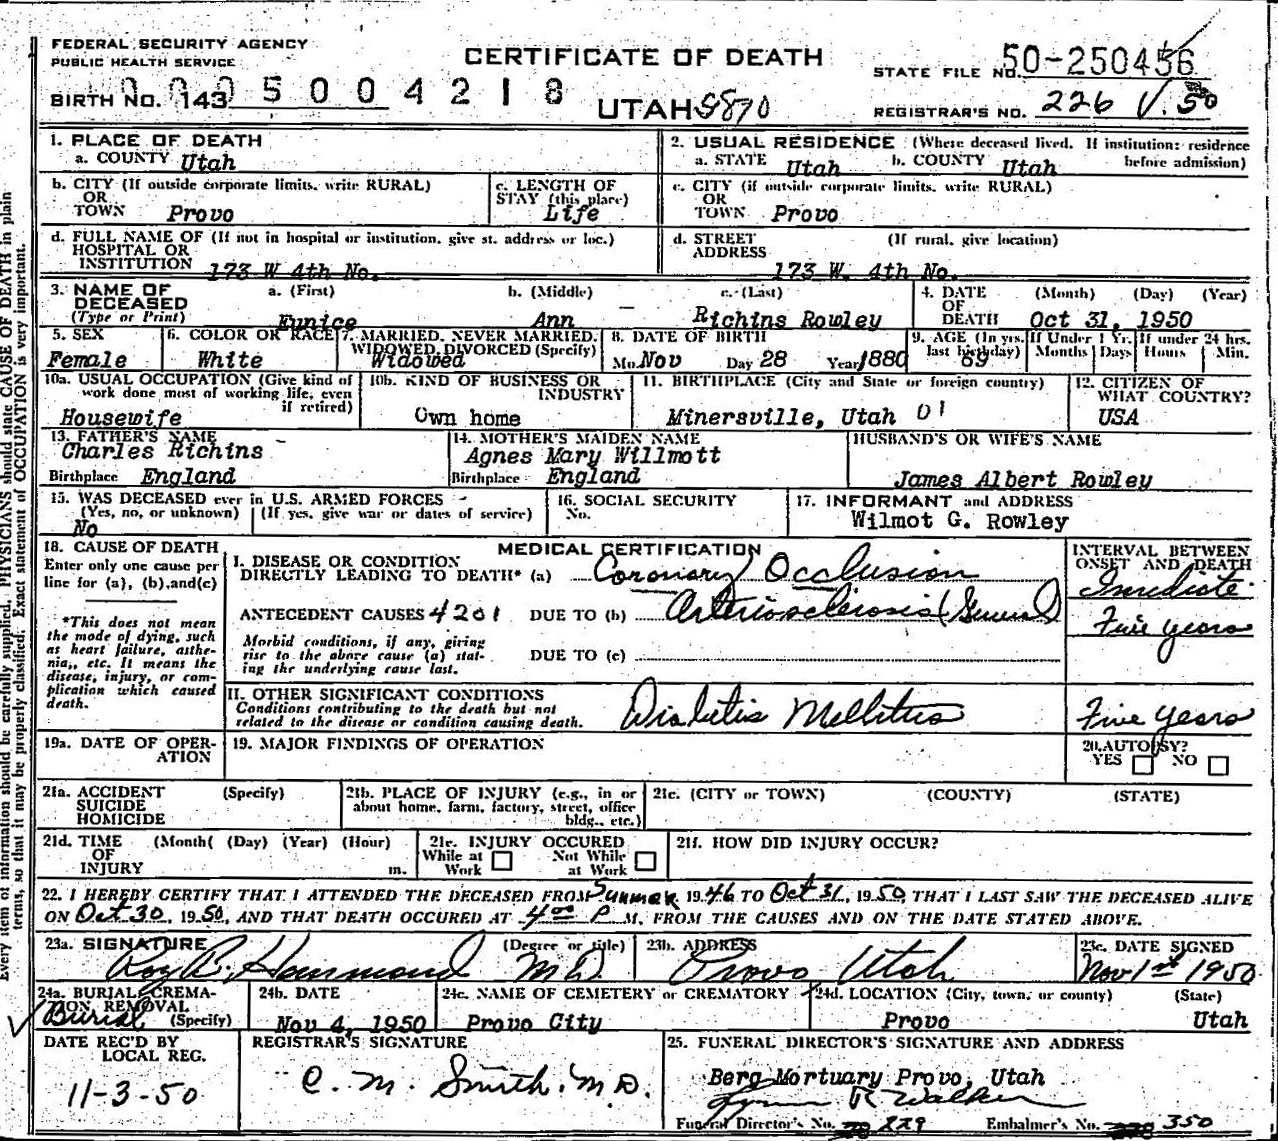 FEDERAL SECURITY AGENCY
PUBLIC HEALTH SERVICE
CERTIFICATE OF DEATH
STATE FILE NO. 50-250456
BIRTH NO. 143 5004218
UTAH 5870
REGISTRAR'S NO. 226 V. 50
1. PLACE OF DEATH
a. COUNTY Utah
2. USUAL RESIDENCE (Where deceased lived. If institution: residence before admission)
a. STATE Utah b. COUNTY Utah
b. CITY (If outside corporate limits, write RURAL)
OR
TOWN Provo
c. LENGTH OF
STAY (this place)
Life
c. CITY (if outside corporate limits, write RURAL)
OR
TOWN Provo
d. FULL NAME OF (If not in hospital or institution, give st. address or loc.)
HOSPITAL OR
INSTITUTION 173 W 4th No.
d. STREET (If rural, give location)
ADDRESS
173 W. 4th No.
3. NAME OF a. (First) b. (Middle) c. (Last)
DECEASED
(Type or Print) Eunice Ann Richins Rowley
4. DATE (Month) (Day) (Year)
OF
DEATH Oct 31, 1950
5. SEX
Female
6. COLOR OR RACE
White
7. MARRIED, NEVER MARRIED,
WIDOWED, DIVORCED (Specify)
Widowed
8. DATE OF BIRTH
Mo. Nov Day 28 Year 1880
9. AGE (In yrs. last birthday)
69
If Under 1 Yr.
Months Days
If under 24 hrs.
Hours Min.
10a. USUAL OCCUPATION (Give kind of
work done most of working life, even
if retired)
Housewife
10b. KIND OF BUSINESS OR
INDUSTRY
Own home
11. BIRTHPLACE (City and State or foreign country)
Minersville, Utah 01
12. CITIZEN OF
WHAT COUNTRY?
USA
13. FATHER'S NAME
Charles Richins
Birthplace England
14. MOTHER'S MAIDEN NAME
Agnes Mary Willmott
Birthplace England
HUSBAND'S OR WIFE'S NAME
James Albert Rowley
15. WAS DECEASED ever in U.S. ARMED FORCES
(Yes, no, or unknown) (If yes, give war or dates of service)
No
16. SOCIAL SECURITY
No.
17. INFORMANT and ADDRESS
Wilmot G. Rowley
18. CAUSE OF DEATH
Enter only one cause per
line for (a), (b),and(c)
*This does not mean
the mode of dying, such
as heart failure, asthe-
nia,, etc. It means the
disease, injury, or com-
plication which caused
death.
MEDICAL CERTIFICATION
I. DISEASE OR CONDITION
DIRECTLY LEADING TO DEATH* (a) Coronary Occlusion
ANTECEDENT CAUSES 4201 DUE TO (b) Arteriosclerosis (General)
Morbid conditions, if any, giving
rise to the above cause (a) stat-
ing the underlying cause last.
DUE TO (c)
II. OTHER SIGNIFICANT CONDITIONS
Conditions contributing to the death but not
related to the disease or condition causing death.
Diabetis Mellitus
INTERVAL BETWEEN
ONSET AND DEATH
Imediate
Five years
Five years
19a. DATE OF OPER-
ATION
19. MAJOR FINDINGS OF OPERATION
20. AUTOPSY?
YES NO
21a. ACCIDENT (Specify)
SUICIDE
HOMICIDE
21b. PLACE OF INJURY (e.g., in or
about home, farm, factory, street, office
bldg., etc.)
21c. (CITY or TOWN) (COUNTY) (STATE)
21d. TIME (Month( (Day) (Year) (Hour)
OF
INJURY m.
21e. INJURY OCCURED
While at Work
Not While at Work
21f. HOW DID INJURY OCCUR?
22. I HEREBY CERTIFY THAT I ATTENDED THE DECEASED FROM Summer 1946 TO Oct 31, 1950, THAT I LAST SAW THE DECEASED ALIVE
ON Oct. 30, 1950, AND THAT DEATH OCCURED AT 4 00 P M. FROM THE CAUSES AND ON THE DATE STATED ABOVE.
23a. SIGNATURE (Degree or title)
Roy B. Hammond M.D.
23b. ADDRESS
Provo Utah
23c. DATE SIGNED
Nov 1st 1950
24a. BURIAL, CREMA-
TION REMOVAL
(Specify)
Burial
24b. DATE
Nov 4, 1950
24c. NAME OF CEMETERY or CREMATORY
Provo City
24d. LOCATION (City, town, or county) (State)
Provo Utah
DATE REC'D BY
LOCAL REG.
11-3-50
REGISTRAR'S SIGNATURE
C. M. Smith. M.D.
25. FUNERAL DIRECTOR'S SIGNATURE AND ADDRESS
Berg Mortuary Provo, Utah
Lynn R Walker
Funeral Director's No. 229 Embalmer's No. 350
Every item of information should be carefully supplied. PHYSICIANS should state CAUSE OF DEATH in plain
terms, so that it may be properly classified. Exact statement of OCCUPATION is very important.